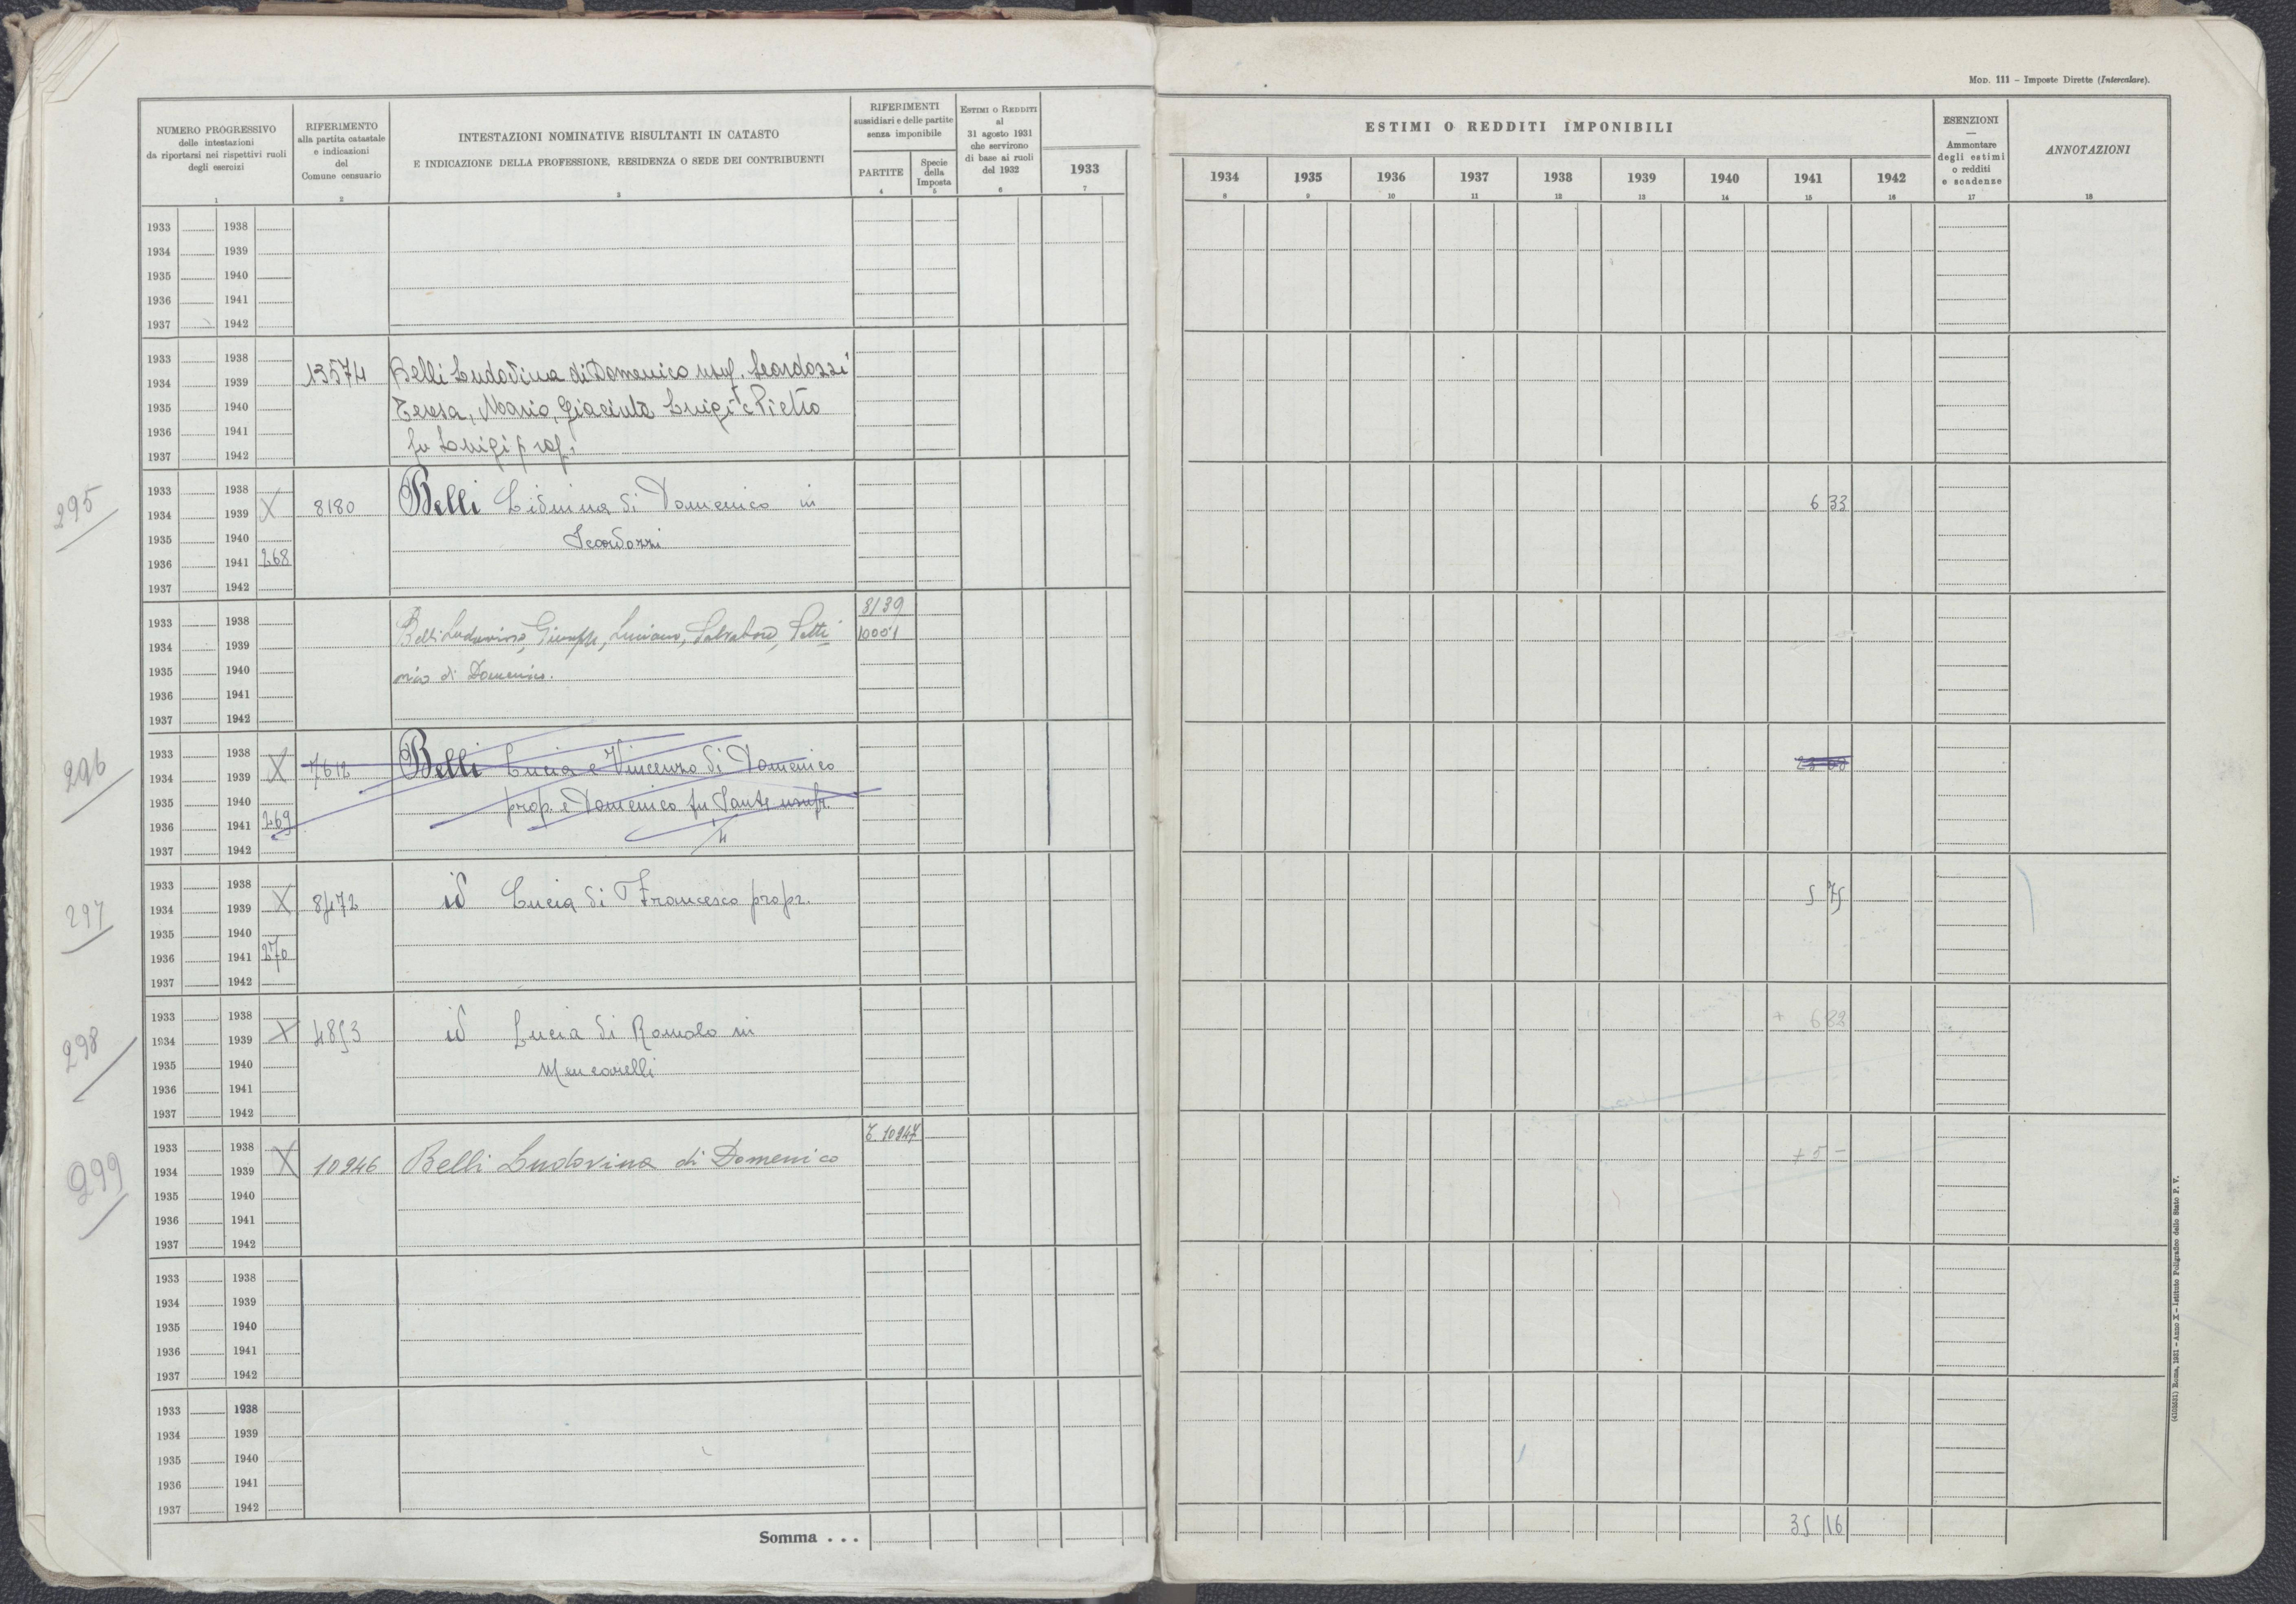 MOD. 111 – Imposte Dirette (Intercalare).
NUMERO PROGRESSIVO
delle intestazioni
da riportarsi nei rispettivi ruoli
degli esercizi
1
RIFERIMENTO
alla partita catastale
e indicazioni
del
Comune censuario
2
INTESTAZIONI NOMINATIVE RISULTANTI IN CATASTO
E INDICAZIONE DELLA PROFESSIONE, RESIDENZA O SEDE DEI CONTRIBUENTI
3
RIFERIMENTI
sussidiari e delle partite
senza imponibile
PARTITE
4
Specie
della
Imposta
5
ESTIMI O REDDITI
al
31 agosto 1931
che servirono
di base ai ruoli
del 1932
6
1933
7
ESTIMI O REDDITI IMPONIBILI
1934 1935 1936 1937 1938 1939 1940 1941 1942
8 9 10 11 12 13 14 15 16
ESENZIONI
—
Ammontare
degli estimi
o redditi
e scadenze
17
ANNOTAZIONI
18
1933 1938
1934 1939
1935 1940
1936 1941
1937 1942
1933 1938
1934 1939 13574 Belli Ludovina di Domenico usuf.
1935 1940 Teresa, Mario, Giacinto Luigi e Pietro
1936 1941
1937 1942 fu Luigi prop.
295
1933 1938
1934 1939 X 8180 Belli Lidvina di Domenico in 6 33
1935 1940 Scardozzi
1936 1941 268
1937 1942
1933 1938 8139
1934 1939 Belli Ludovina, Giuseppe, Luciano, Salvatore, Setti 10001
1935 1940 mio di Domenico.
1936 1941
1937 1942
296
1933 1938
1934 1939 X 7612 Belli Lucia e Vincenzo di Domenico
1935 1940 prop. e Domenico fu Sante usufr.
1936 1941 269
1937 1942 4
297
1933 1938
1934 1939 X 8472 id Lucia di Francesco propr. 5 75
1935 1940
1936 1941 270
1937 1942
298
1933 1938
1934 1939 X 4853 id Lucia di Romolo in + 6 82
1935 1940 Mencarelli
1936 1941
1937 1942
299
1933 1938 T. 10947
1934 1939 X 10946 Belli Ludovina di Domenico + 5 –
1935 1940
1936 1941
1937 1942
1933 1938
1934 1939
1935 1940
1936 1941
1937 1942
1933 1938
1934 1939
1935 1940
1936 1941
1937 1942
Somma . . . 35 16
(4102331) Roma, 1931 – Anno X – Istituto Poligrafico dello Stato P. V.